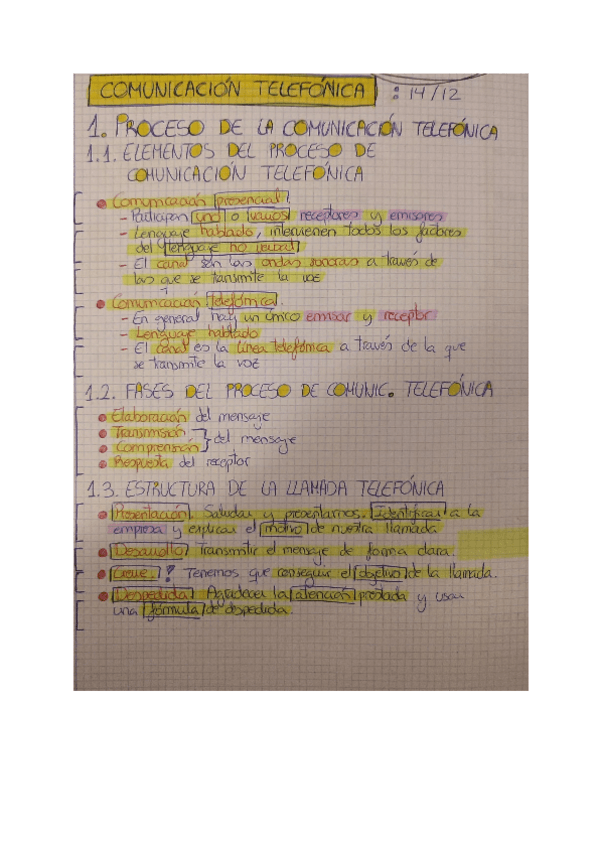 COMUNICACIÓN TELEFÓNICA : 14/12
1. PROCESO DE LA COMUNICACIÓN TELEFÓNICA
1.1. ELEMENTOS DEL PROCESO DE
COMUNICACIÓN TELEFÓNICA
• Comunicación presencial.
- Participan uno o varios receptores y emisores
- Lenguaje hablado, intervienen todos los factores
del lenguaje no verbal
- El canal son las ondas sonoras a través de
las que se transmite la voz
• Comunicación telefónica.
- En general hay un único emisor y receptor
- Lenguaje hablado
- El canal es la línea telefónica a través de la que
se transmite la voz
1.2. FASES DEL PROCESO DE COMUNIC. TELEFÓNICA
• Elaboración del mensaje
• Transmisión
} del mensaje
• Comprensión
• Respuesta del receptor
1.3. ESTRUCTURA DE LA LLAMADA TELEFÓNICA
• Presentación. Saludar y presentarnos. Identificar a la
empresa y explicar el motivo de nuestra llamada
• Desarrollo. Transmitir el mensaje de forma clara.
• Cierre. ! Tenemos que conseguir el objetivo de la llamada.
• Despedida. Agradecer la atención prestada y usar
una fórmula de despedida.